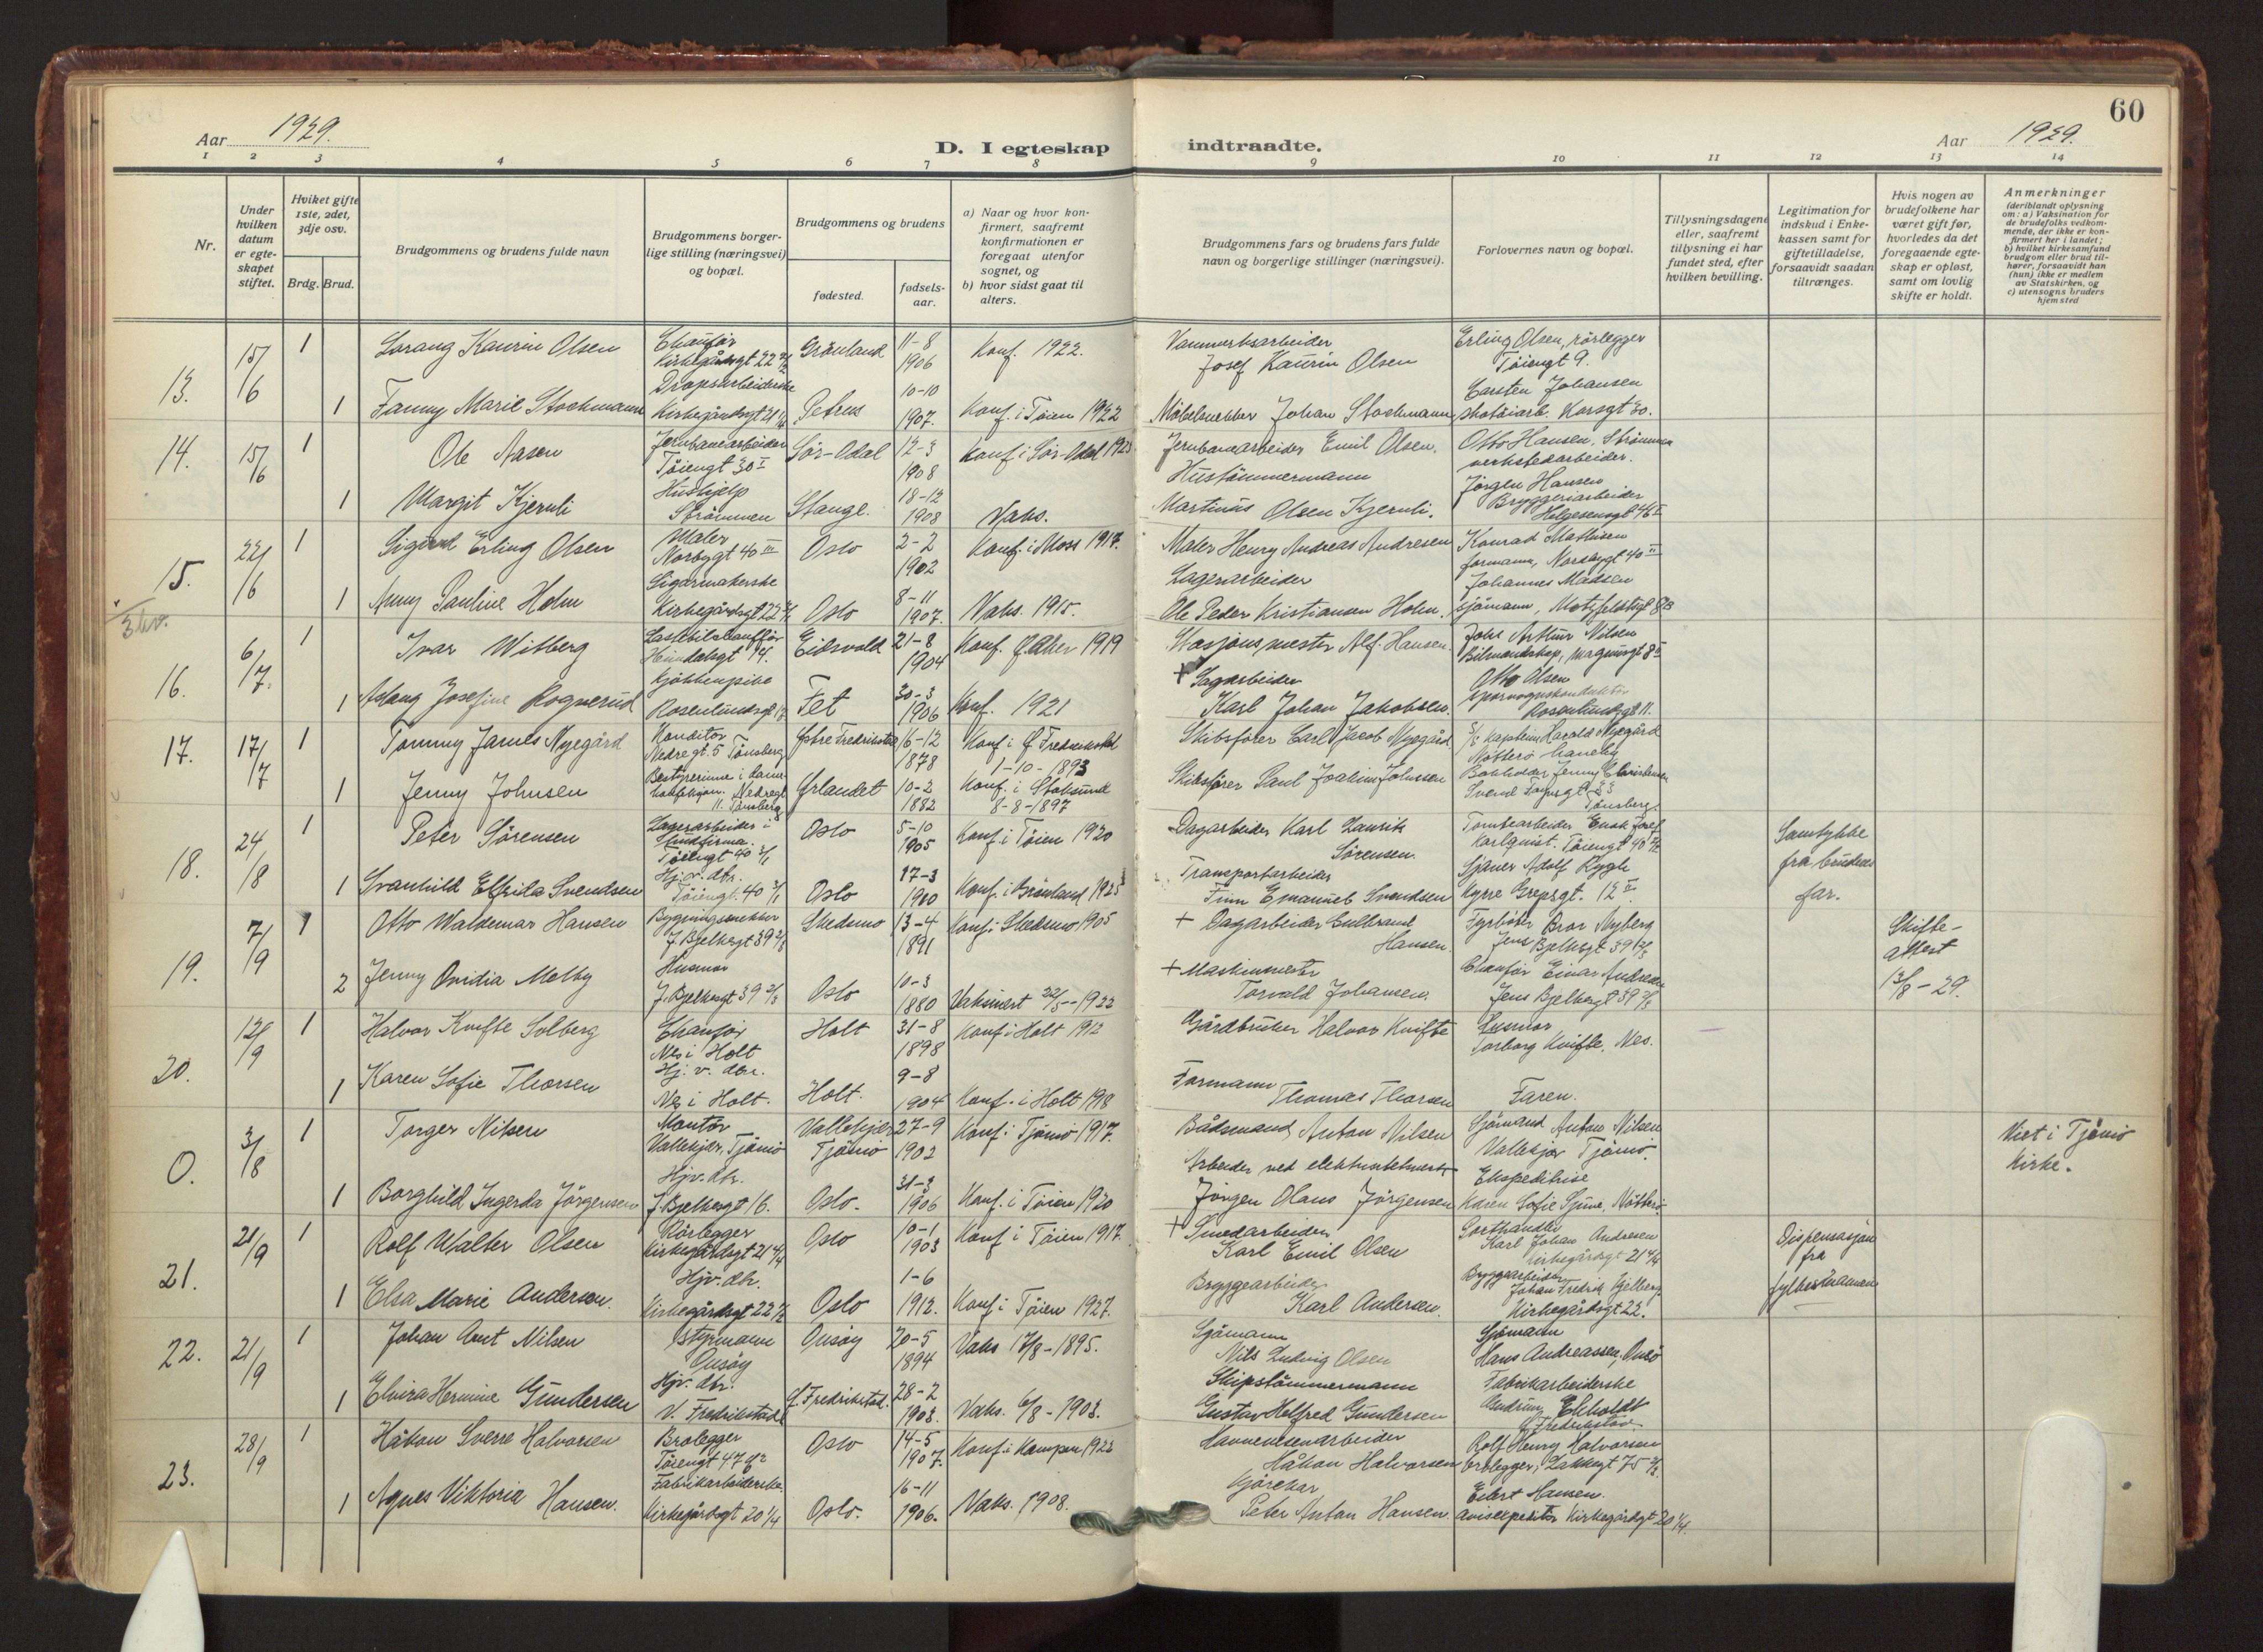 60
Aar 1929.
D. I egteskap indtraadte.
Aar 1929.
1 2 3 4 5 6 7 8 9 10 11 12 13 14
Nr.
Under hvilken datum er egte-skapet stiftet.
Hviket gifte 1ste, 2det, 3dje osv.
Brdg. Brud.
Brudgommens og brudens fulde navn
Brudgommens borger-lige stilling (næringsvei) og bopæl.
Brudgommens og brudens
fødested.
fødsels-aar.
a) Naar og hvor kon-firmert, saafremt konfirmationen er foregaat utenfor sognet, og
b) hvor sidst gaat til alters.
Brudgommens fars og brudens fars fulde navn og borgerlige stillinger (næringsvei).
Forlovernes navn og bopæl.
Tillysningsdagene eller, saafremt tillysning ei har fundet sted, efter hvilken bevilling.
Legitimation for indskud i Enke-kassen samt for giftetilladelse, forsaavidt saadan tiltrænges.
Hvis nogen av brudefolkene har været gift før, hvorledes da det foregaaende egte-skap er opløst, samt om lovlig skifte er holdt.
Anmerkninger (deriblandt oplysning om: a) Vaksination for de brudefolks vedkom-mende, der ikke er kon-firmert her i landet; b) hvilket kirkesamfund brudgom eller brud til-hører, forsaavidt han (hun) ikke er medlem av Statskirken, og c) utensogns bruders hjemsted
13. 15/6 1 Lorang Kaurin Olsen Chauffør Kirkegårdsgt 22 Grönland 11-8 1906 Konf. 1922. Josef Kaurin Olsen Erling Olsen, rörlegger Töiengt 9.
1 Fanny Marie Stockmann Dropsarbeiderske Kirkegårdsgt 21 Petrus 10-10 1907. Konf. i Töien 1922 Möbelsnekker Johan Stockmann Carsten Johansen skotöiarb. Korsgt 30.
14. 15/6 1 Ole Aasen Jernbanearbeider Töiengt 30 I Sör-Odal 12-3 1908 Konf i Sör-Odal 1923 Jernbanearbeider Emil Olsen. Otto Hansen, Strömmen verkstedarbeider.
1 Margit Kjernli Hushjelp Strömmen Stange. 18-12 1908 Vaks. Hustömmermann Martinus Olsen Kjernli. Jörgen Hansen Bryggeriarbeider Helgesensgt 46 II
15. 22/6 1 Sigurd Erling Olsen Maler Norbygt 40 III Oslo 2-2 1902 Konf. i Moss 1917. Maler Henry Andreas Andresen Konrad Mathisen formann, Norbygt 40 II
1 Anny Pauline Holm Sigarmakerske Kirkegårdsgt 22 Oslo 8-11 1907. Vaks. 1915. Lagerarbeider Ole Peder Kristiansen Holm. Johannes Madsen sjömann, Motzfeldtsgt 8B
16. 6/7. 1 Ivar Witberg Lastebilchauffør Heimdalsgt Eidsvold 21-8 1904 Konf. Ø. Aker 1919 Stasjonsmester Alf. Hansen. Johs Arthur Nilsen Bilmandskap, Magnusgt 8 II
1 Aslaug Josefine Rognerud Kjökkenpike Rosenlundsgt Fet 30-3 1906 Konf. 1921 + Sagarbeider Karl Johan Jakobsen. Otto Olsen sporvognskonduktör Rosenlundsgt 11.
17. 17/7 1 Tommy James Nyegård Konditor Nedregt 5 Tönsberg Østre Fredrikstad 16-12 1878 Konf i Ø. Fredrikstad 1-10-1893 Skibsförer Carl Jacob Nyegård kaptein Harald Nyegård Nötterö
1 Jenny Johnsen Bestyrerinne i dame konfeksjon. Nedregt 11. Tönsberg Ørlandet 10-2 1882 Konf. i Stoksund 8-8-1897 Skibsförer Paul Joakim Johnsen Bokholder Jenny Christensen Svend Foynsgt 23 Tönsberg.
18. 24/8 1 Peter Sörensen Lagerarbeider i Töiengt 40 Oslo 5-10 1905 Konf. i Töien 1920 Dagarbeider Karl Laurits Sörensen. Tomtearbeider Enok Josef Karlquist. Töiengt 40 Samtykke fra brudens far.
1 Svanhild Elfrida Svendsen Hj. v. dbr. Töiengt. 40 Oslo 17-3 1910 Konf. i Grönland 1925 Transportarbeider Finn Emanuel Svendsen Sjauer Adolf Rygh Kyrre Grepsgt. 12 II.
19. 7/9 1 Otto Waldemar Hansen Bygningssnekker J. Bjelkesgt 39 Skedsmo 13-4 1891 Konf i Skedsmo 1905 + Dagarbeider Gulbrand Hansen Fyrböter Bror Nyberg Jens Bjelkesgt 39 Skifte-attest 13/8-29.
2 Jenny Ovidia Melby Husmor J. Bjelkesgt 39 Oslo 10-3 1880 Vaksinert 22/5-1922 + Maskinmester Torvald Johansen. Chauffør Einar Andresen Jens Bjelkesgt 39
20. 12/9 1 Halvor Kvifte Solberg Chauffør Nes i Holt Holt 31-8 1898 Konf i Holt 1912 Gårdbruker Halvor Kvifte Husmor Torborg Kvifte, Nes.
1 Karen Sofie Thorsen Hj. v. dbr. Nes i Holt. Holt. 9-8 1904 Konf. i Holt 1918 Formann Thomas Thorsen Faren.
0. 3/8 1 Torger Nilsen Montör Vallekjær, Tjömö Vallekjær Tjömö 27-9 1902 Konf. i Tjömö 1917. Bådsmand Anton Nilsen Sjömand Anton Nilsen Vallekjær Tjömö. Viet i Tjömö Kirke.
1 Borghild Ingerda Jörgensen Hjv. dbr. J. Bjelkesgt 16. Oslo. 31-3 1906 Konf. i Töien 1920 Arbeider ved elektrisitetsverk Jörgen Olaus Jörgensen Ekspeditrise Karen Sofie Nötterö.
21. 21/9 1 Rolf Walter Olsen Rörlegger Kirkegårdsgt 21 Oslo 10-1 1903 Konf i Töien 1917. + Smedarbeider Karl Emil Olsen Karl Johan Andresen Kirkegårdsgt 21 Dispensasjon fra fylkesmannen
1 Elsa Marie Andersen. Hjv. dbr. Kirkegårdsgt 22 Oslo 1-6 1912. Konf i Töien 1927. Bryggearbeider Karl Andersen. Bryggearbeider Johan Fredrik Kjelberg Kirkegårdsgt 22.
22. 21/9 1 Johan Arnt Nilsen styrmann Onsöy Onsöy 20-5 1894 Vaks 17/8-1895. Sjömann Nils Ludvig Olsen Sjömann Hans Andreassen, Onsö
1 Elvira Hermine Gundersen Hjv. dbr. V. Fredrikstad Ø. Fredrikstad. 28-2 1903. Vaks. 6/8-1903. Skipstömmermann Gustav Helfred Gundersen Fabrikarbeiderske Gudrun Ekholdt Fredrikstad
23. 28/9 1 Håkon Sverre Halvorsen Brolegger Töiengt 47 Oslo 14-5 1907. Konf. i Kampen 1922 Havnevesenarbeider Håkon Halvorsen Rolf Henry Halvorsen brolegger, Lakkegt 75
1 Agnes Viktoria Hansen. Fabrikarbeiderske. Kirkegårdsgt 20 1/4 Oslo. 16-11 1906. Vaks. 1908. Kjörekar Peter Anton Hansen. Eilert Hansen. avisexpeditör Kirkegårdsgt 20 1/4.